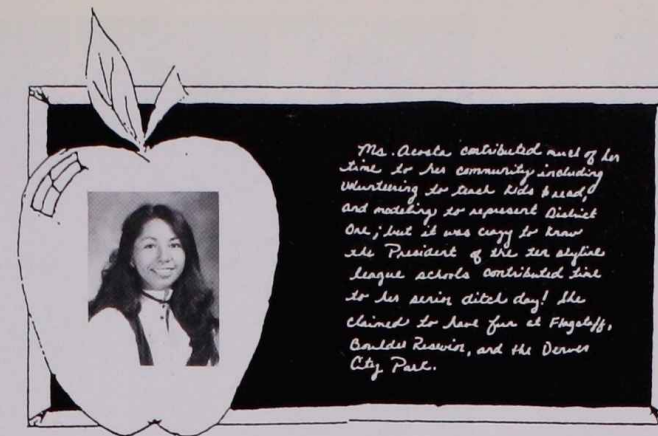 Ms. Acosta contributed much of her
time to her community including
volunteering to teach kids to read,
and modeling to represent District
One; but it was crazy to know
the President of the ten skyline
league schools contributed time
to her senior ditch day! She
claimed to have fun at Flagstaff,
Boulder Reservoir, and the Denver
City Park.